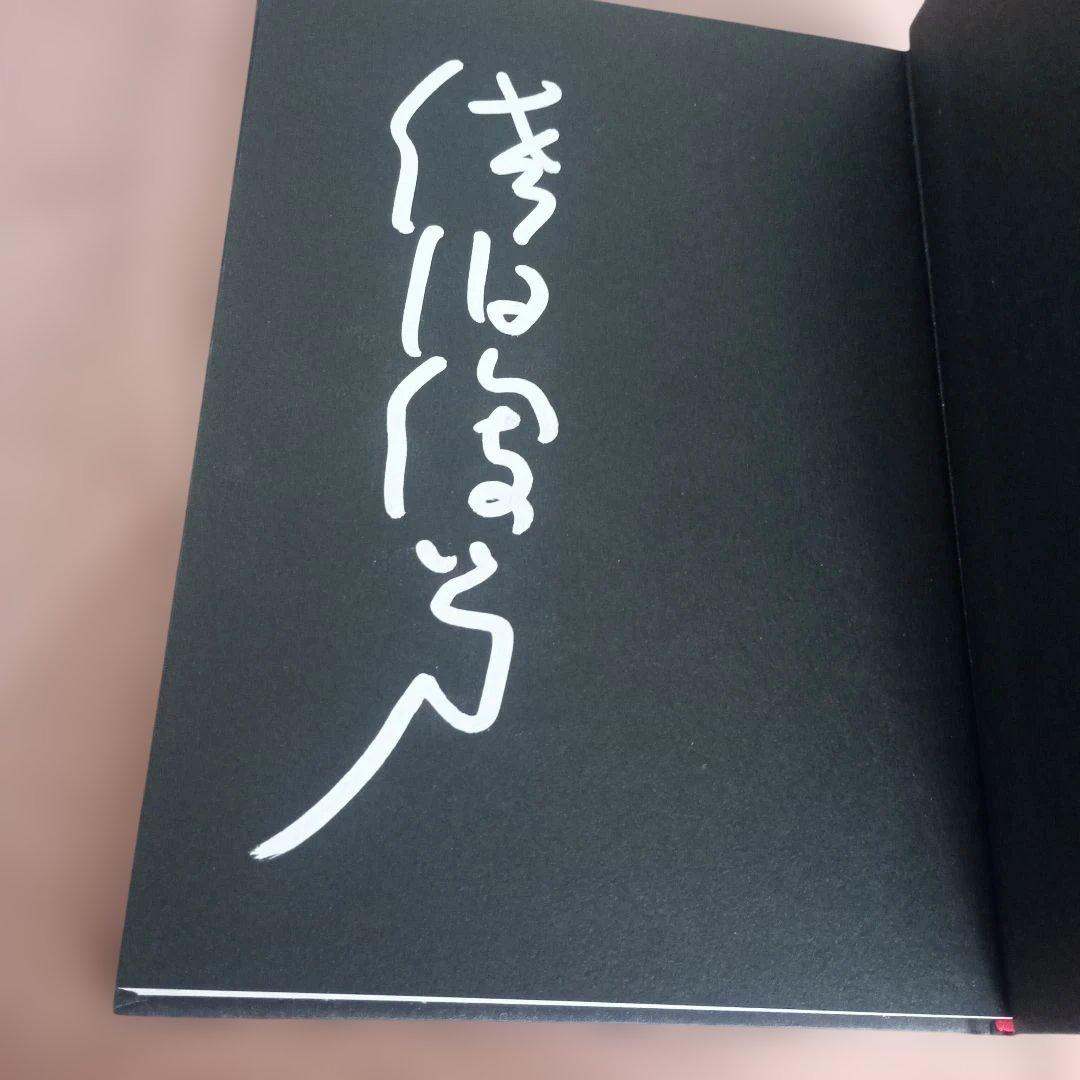 佐伯俊男